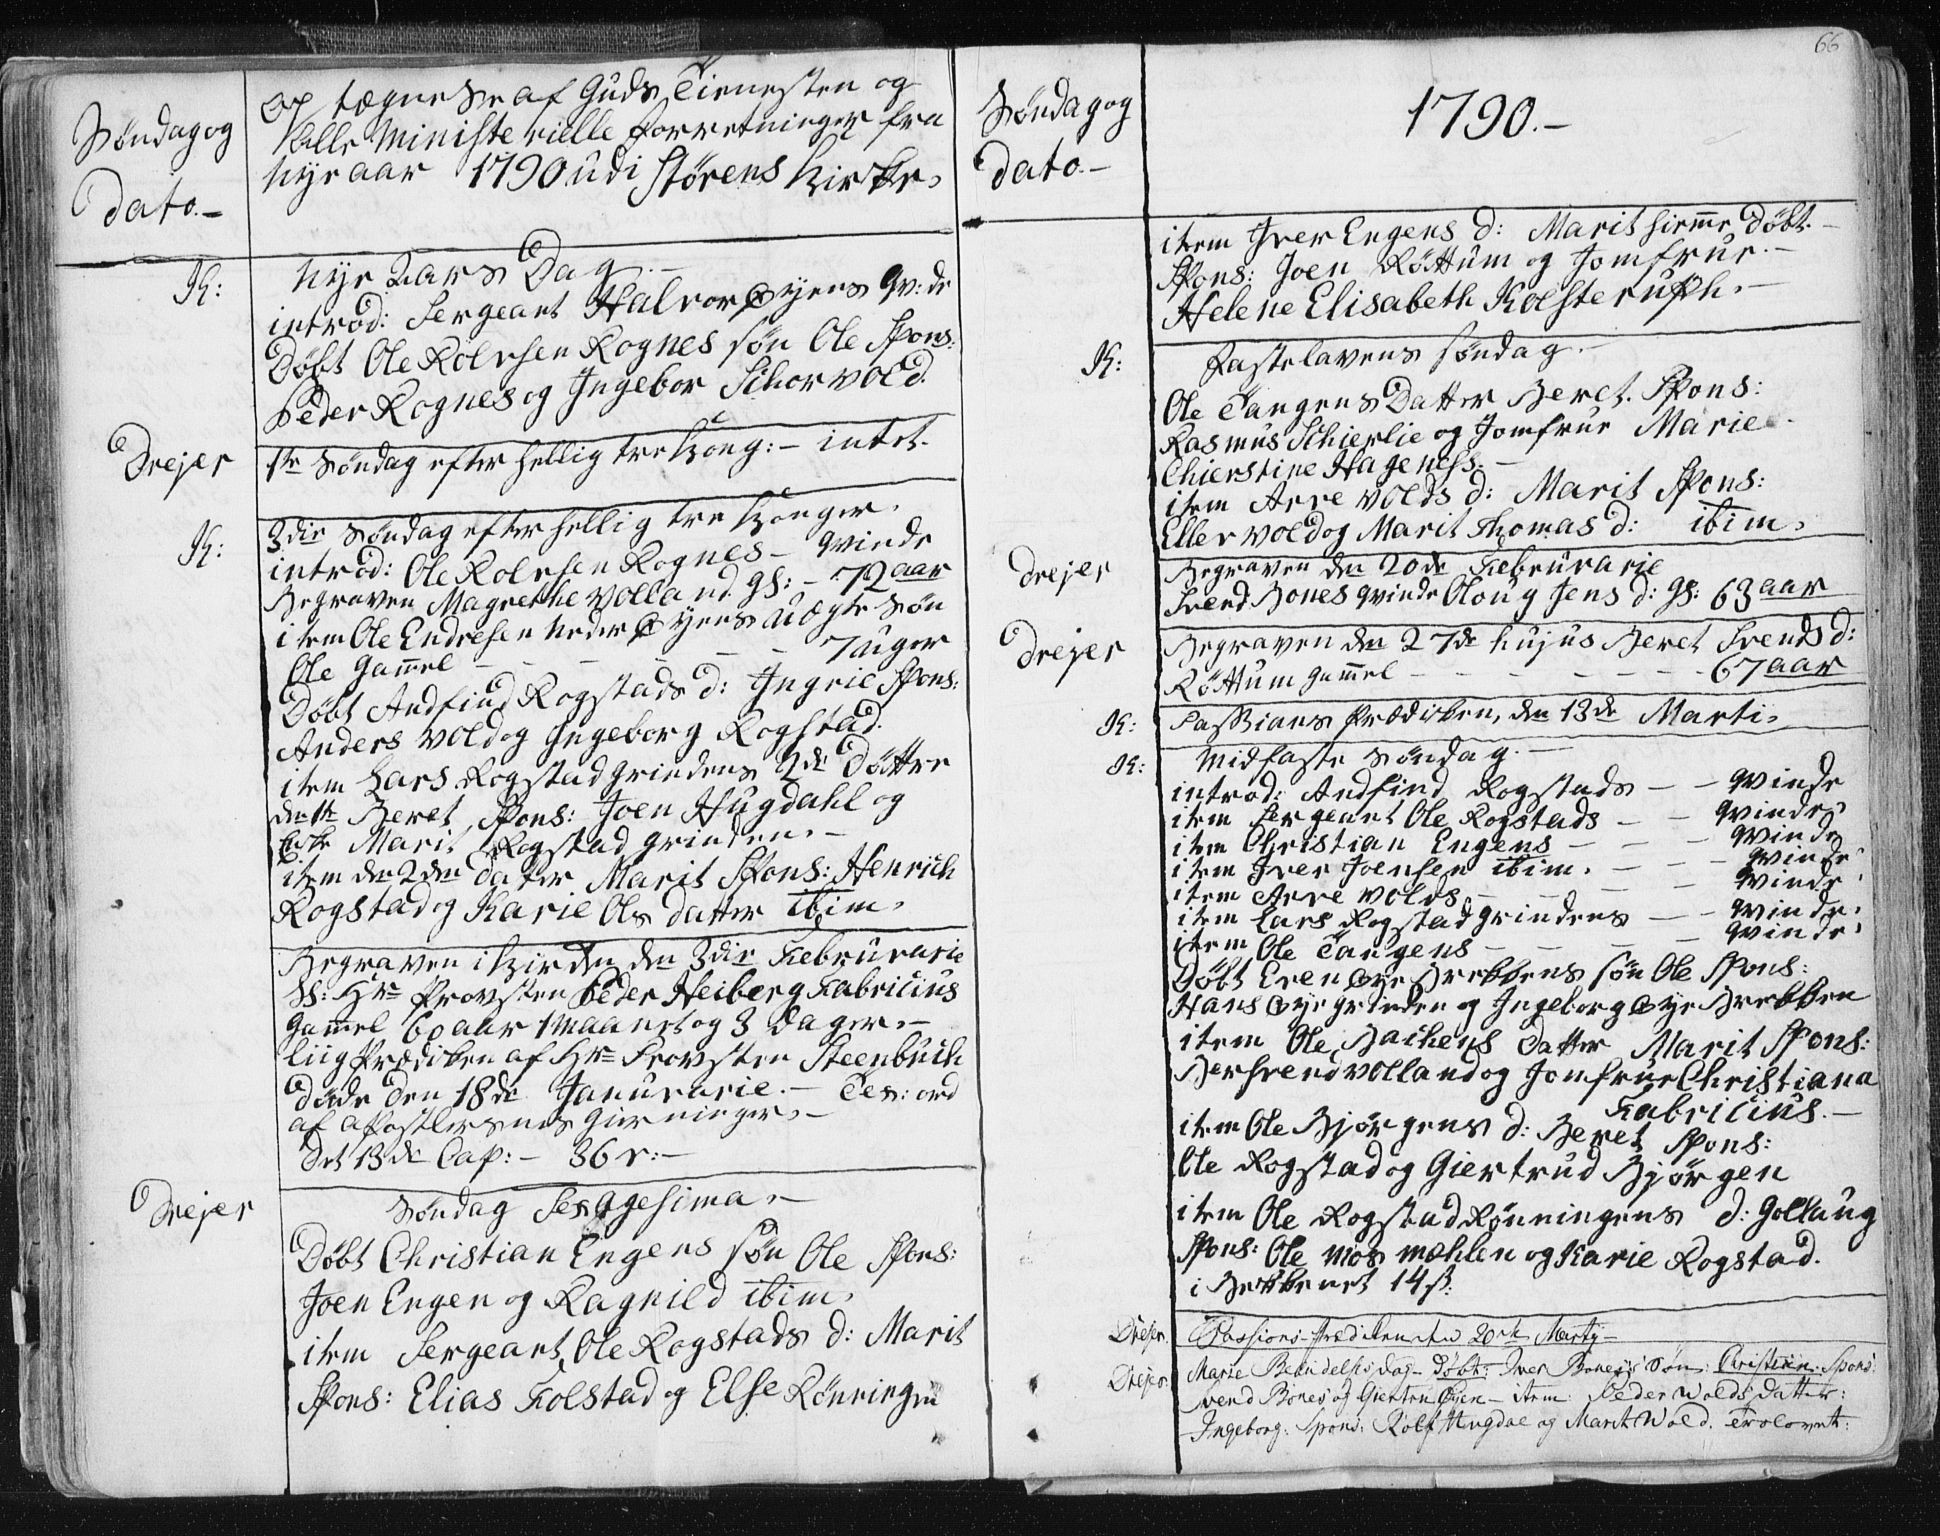 Søndag og
Dato.-
Op tægnelse af Guds Tienesten og
Alle Ministerielle forretninger fra
Nye aar 1790 udi Størens Kirke.
K:
Nye Aars Dag.-
introd: Sergeant Halvor Øyens qv:de
Døbt Ole Rolvsen Rognes søn Ole Spons:
Peder Rognes og Ingebor Schorvold.
Drejer
1te Søndag efter hellig tre Kong:- intet.
K:
3die Søndag efter hellig tre Konger.
introd: Ole Rolvsen Rognes - qvinde
Begraven Magrethe Volland gl:- 72 aar
item Ole Endresen Neder Øyens uægte søn
Ole Gammel - - - - - 7 uger
Døbt Andfind Rogstads d: Ingril Spons:
Anders Vold og Ingeborg Rogstad.
item Lars Rogstadgrindens 2de Døttre
den 1te Beret Spons: Joen Hugdahl og
Marit Rogstad grinden.-
item den 2den Datter Marit Spons: Henrich
Rogstad og Karie Ols datter ibim.
Begraven i Kirken den 3die Februrarie
S: Hr Provsten Peder Heiberg Fabricius
Gammel 60 aar 1 Maanet og 3 dager.-
Liig Prædiken af Hr Provsten Steenbuch
døde den 18de Janurarie.- Tex: ord
af Apostlernes Gierninger.-
Det 13de Cap:- 36 v:-
Drejer
Søndag Sexagesima.-
Døbt Christian Engens søn Ole Spons:
Joen Engen og Ragnild ibim.
item Sergeant Ole Rogstads d: Marit
Spons: Elias Folstad og Else Rønningen
66
Søndag og
Dato.-
1790.-
item Iver Engens d: Marit hieme døbt.-
Spons: Joen Røttum og Jomfrue.-
Helene Elisabeth Kolsterupk.-
K:
Fastelavens Søndag.-
Ole Tangens Datter Beret. Spons:
Rasmus Schierlie og Jomfrue Marie
Chierstine Hageness.-
item Arve Volds d: Marit Spons:
Eller Vold og Marit Thomas d: ibim.
Drejer
Begraven den 20de Februrarie
Svend Bones qvinde Oloug Jens d: gl: 63 aar
Drejer
Begraven den 27de hujus Beret Svends d:
Røttum gammel - - - - - - 67 aar
K:
Passions Prædiken, den 13de Marti.
K:
Midfaste Søndag.-
introd: Andfind Rogstads - - qvinde
item Sergeant Ole Rogstads - - qvinde
item Christian Engens - - - qvinde
item Iver Joensen ibim. - - - qvinde
item Arve Volds - - - - qvinde
item Lars Rogstadgrindens - - qvinde
item Ole Tangens - - - - qvinde
Døbt Even Øye Brekkens søn Ole Spons:
Hans Øye grinden og Ingeborg Øye Brekken
item Ole Bachens Datter Marit Spons:
Bersvend Volland og Jomfrue Christiana
Fabricius.-
item Ole Bjørgens d: Beret Spons:
Ole Rogstad og Giertrud Bjørgen
item Ole Rogstad Rønningens d: Gollaug
Spons: Ole Mos mæhlen og Karie Rogstad.
i Bekkenet 14 s.
Drejer.
Passions-Prædiken den 20de Marty-
Drejer
Marie Bebudelses dag- Døbt: Iver Bones's søn: Christian. Spons:
Svend Bones og Gierten Øyen- item: Peder Wolds datter:
Ingeborg: Spons: Rolf Hugdal og Marit Wold. Trolovet: